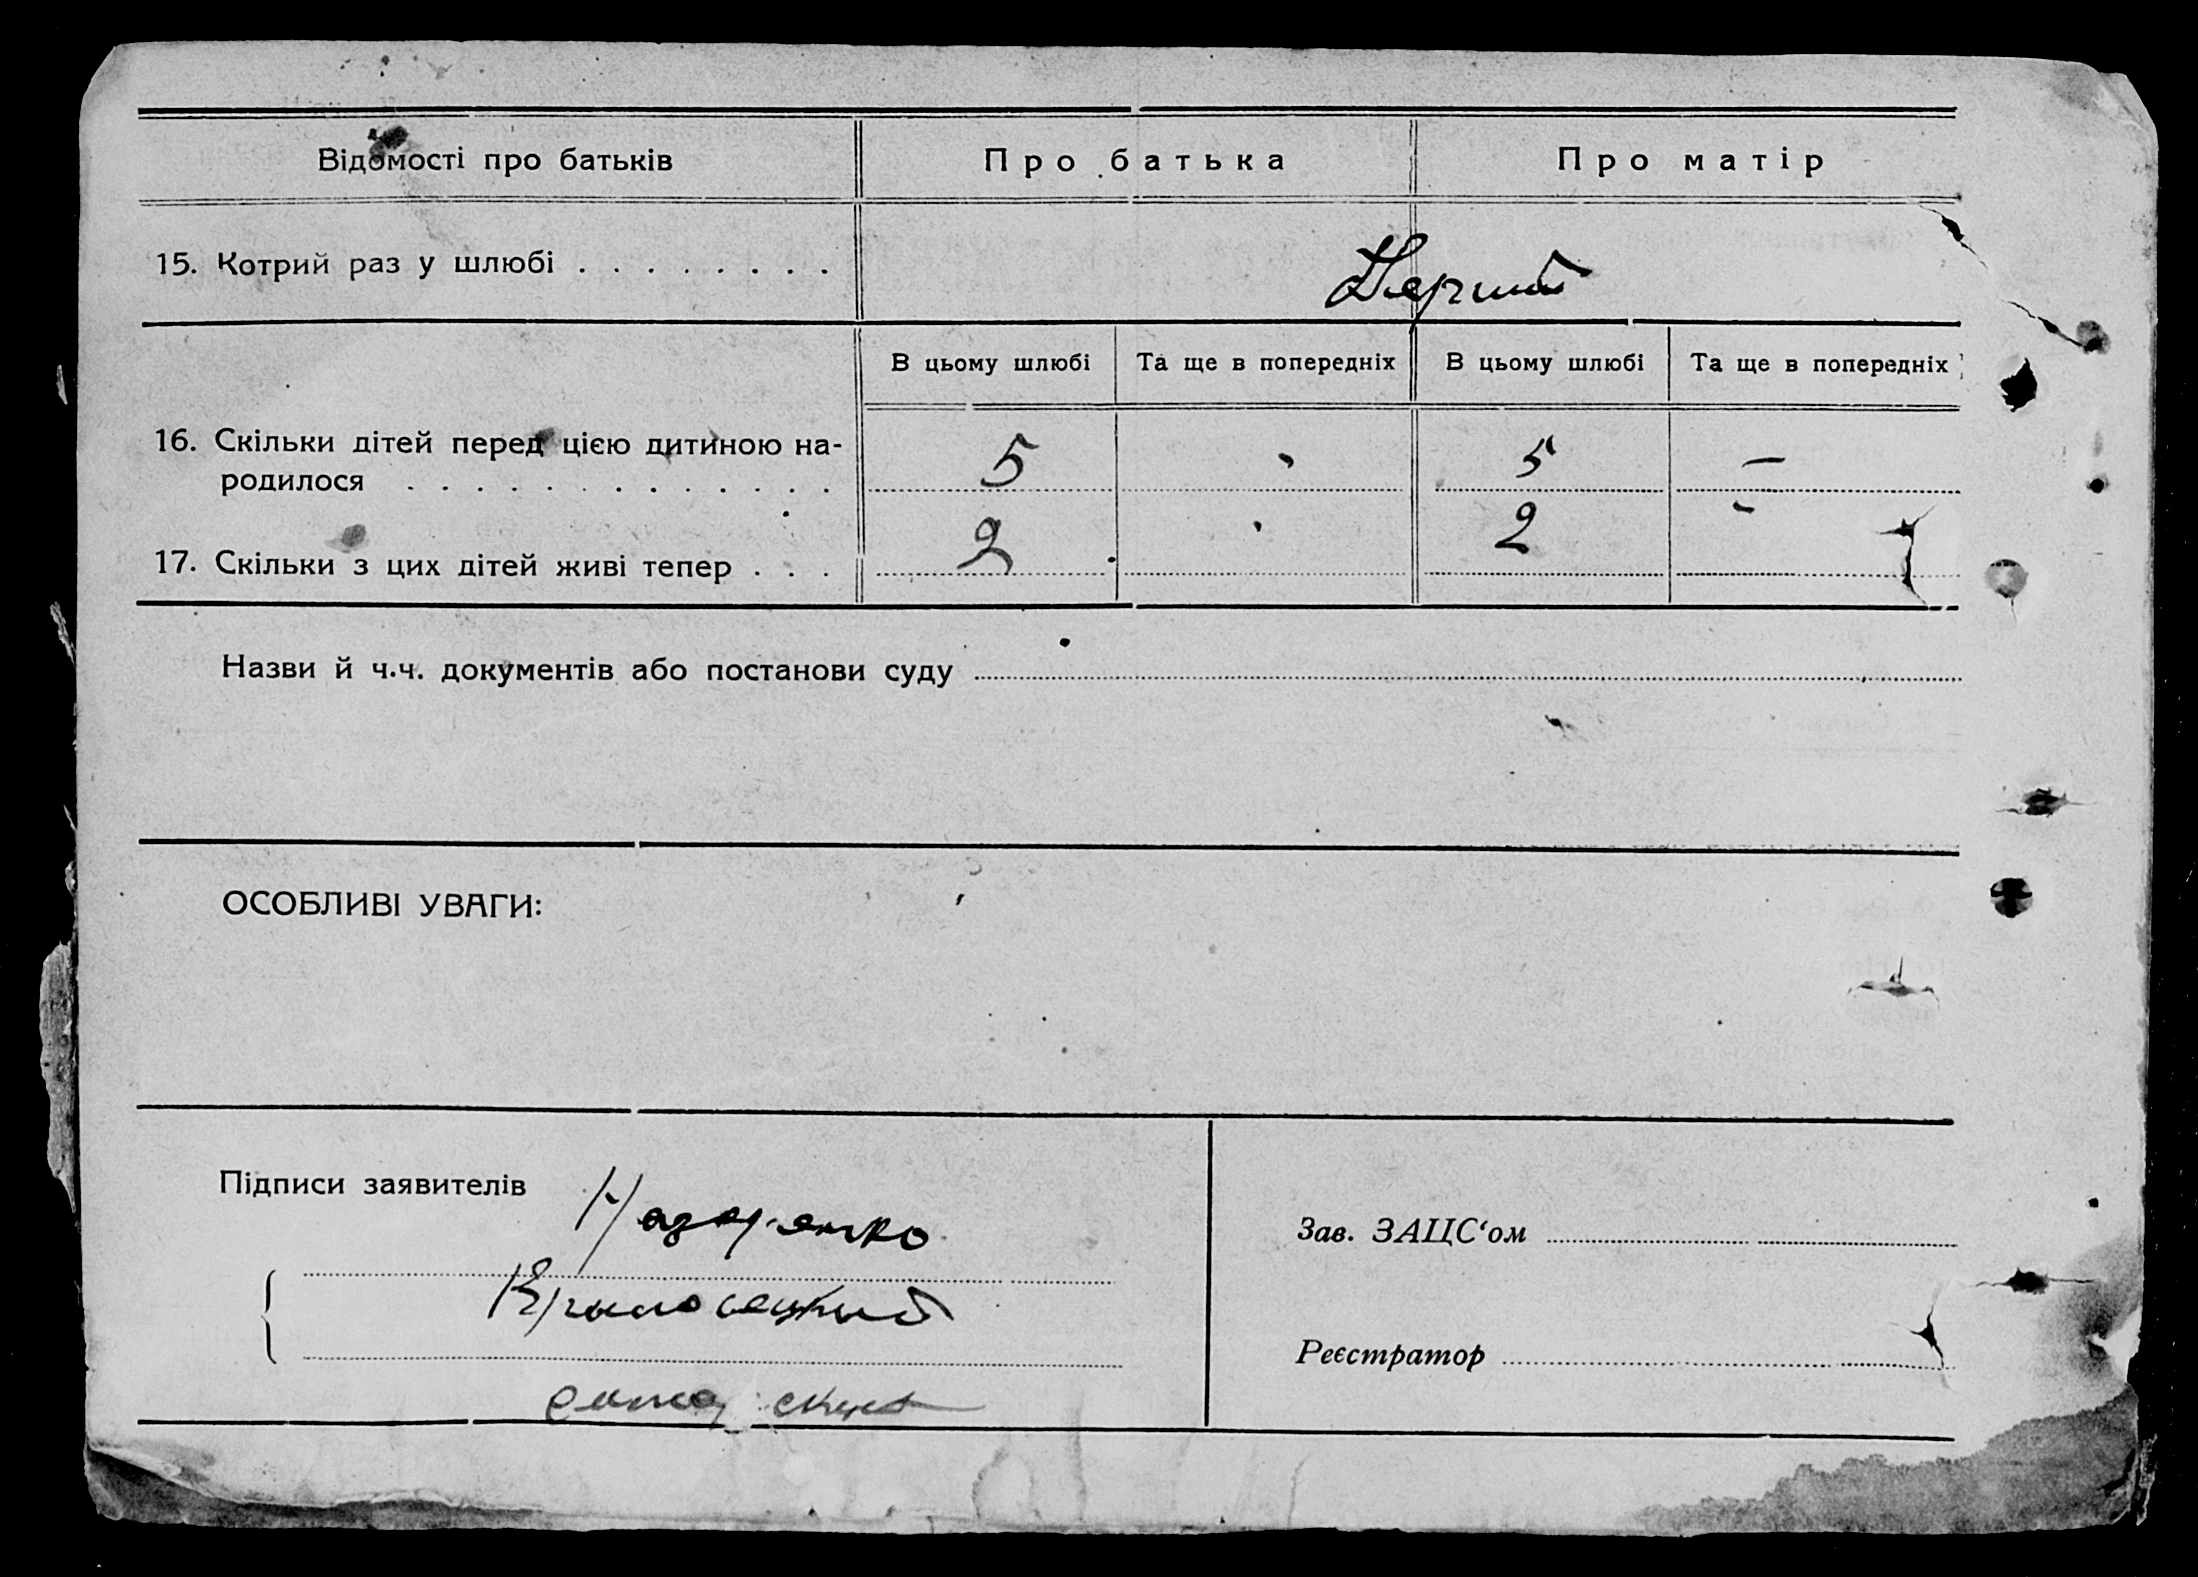 Відомості про батьків
Про батька
Про матір
15. Котрий раз у шлюбі . . . . . . . .
Перший
В цьому шлюбі
Та ще в попередніх
В цьому шлюбі
Та ще в попередніх
16. Скільки дітей перед цією дитиною на-
родилося . . . . . . . . . . . . .
5
5
—
17. Скільки з цих дітей живі тепер . . .
2
2
-
Назви й ч.ч. документів або постанови суду
ОСОБЛИВІ УВАГИ:
Підписи заявителів
Назаренко
Зав. ЗАЦС‘ом
Реєстратор